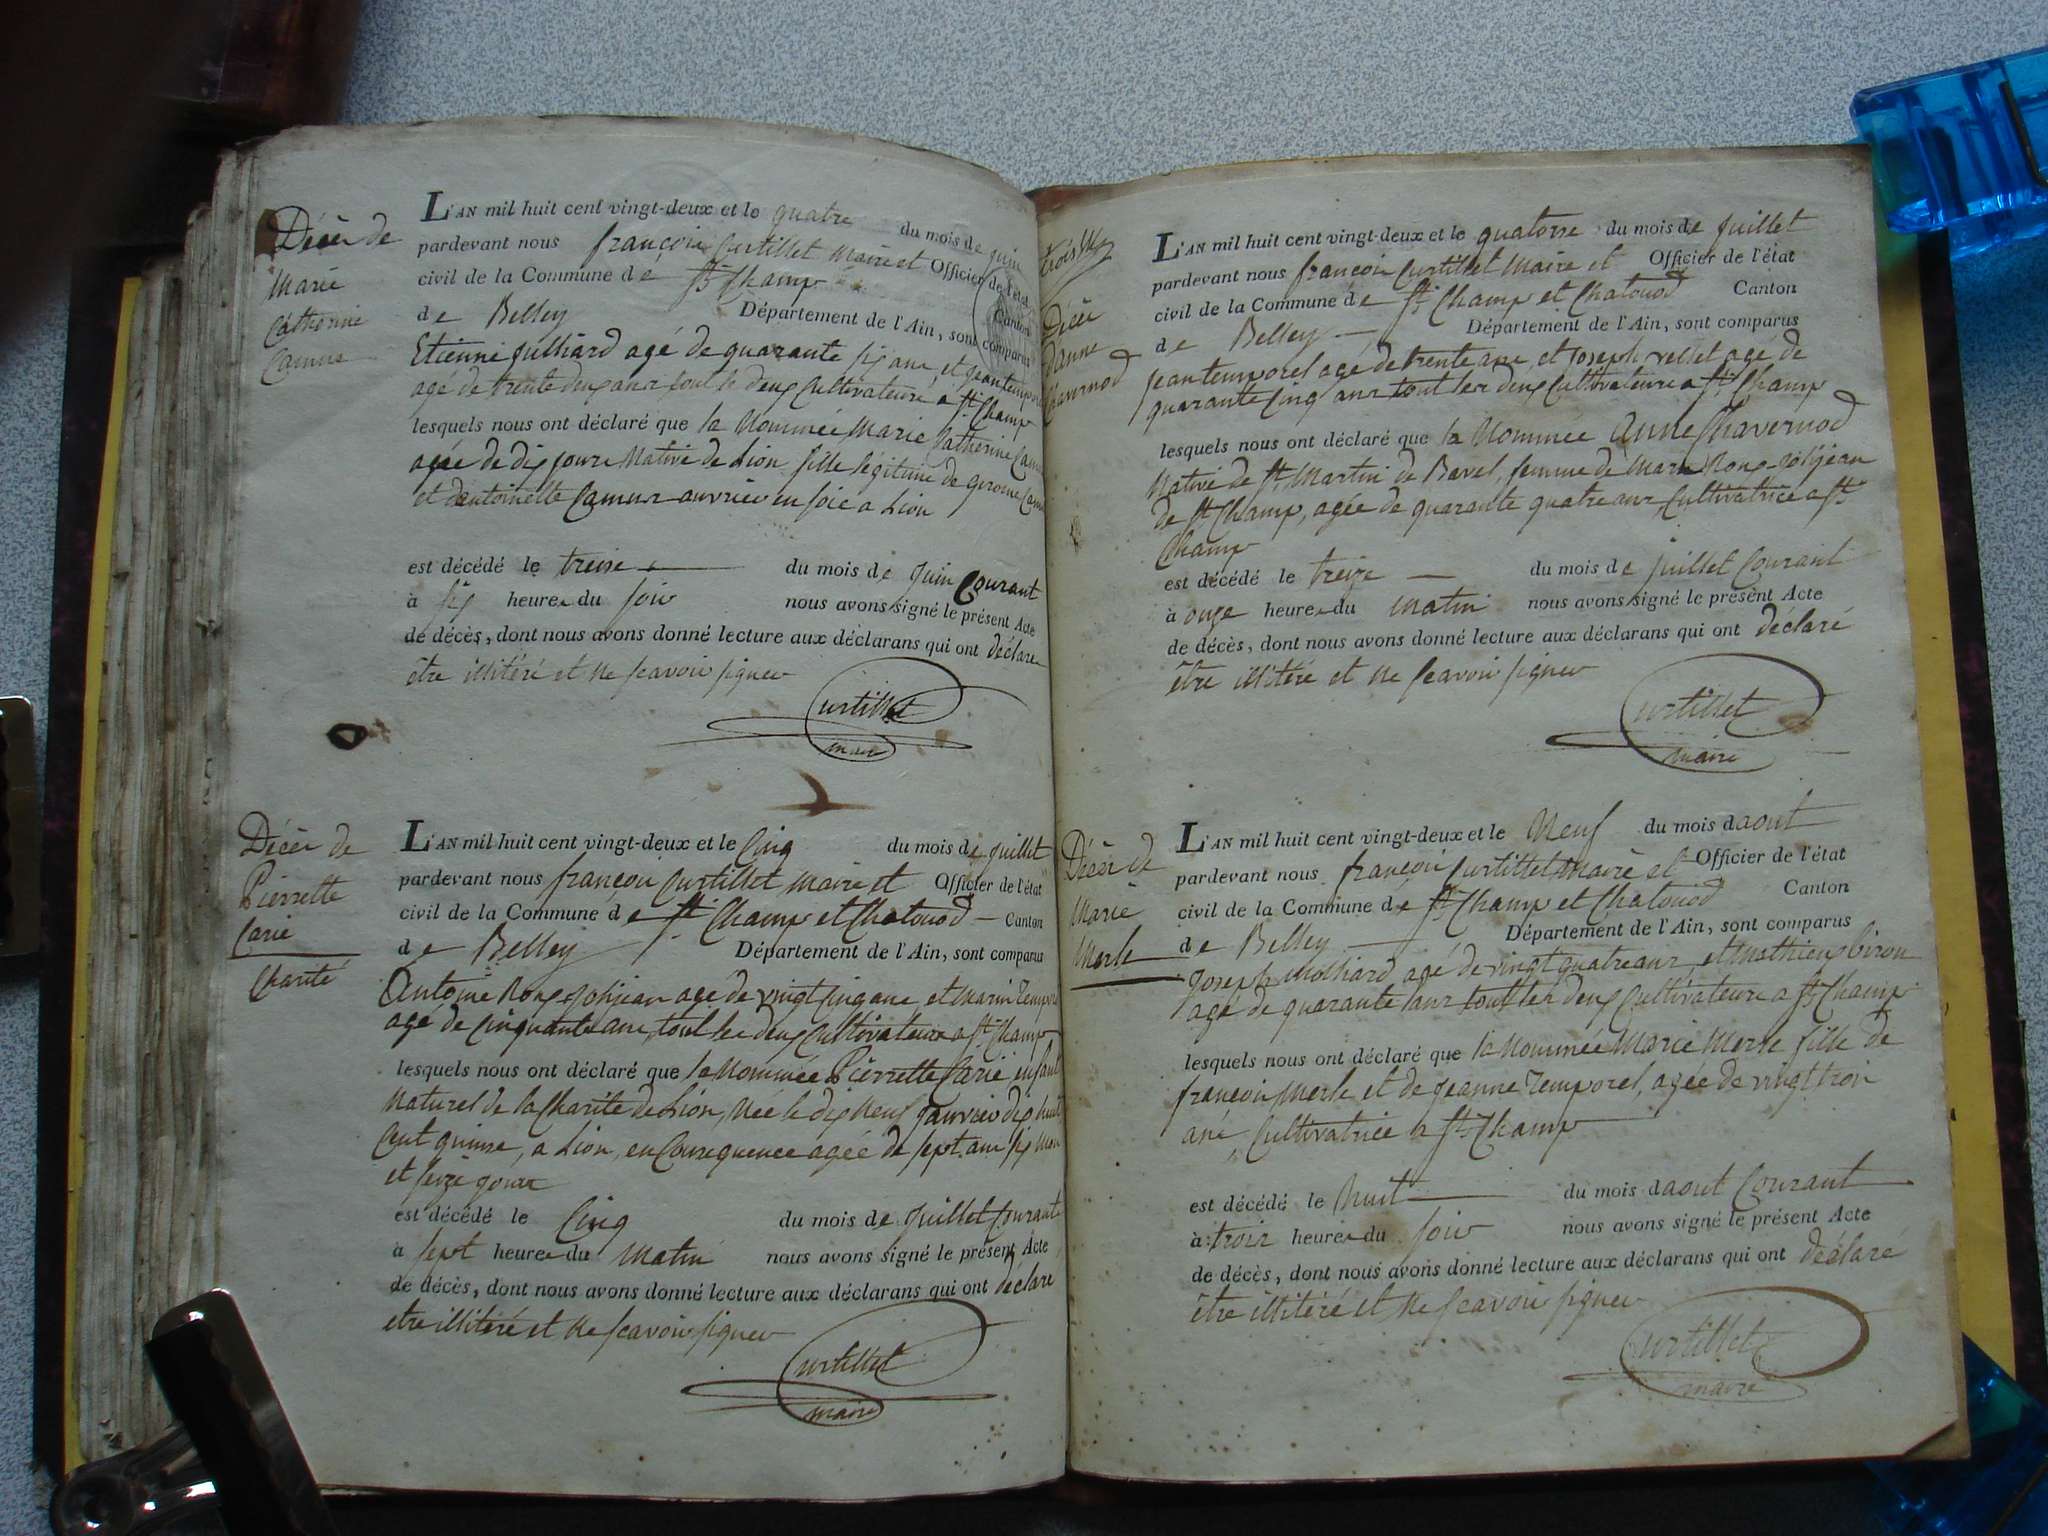 Décèr de
Marie
Catherine
Camus
L'AN mil huit cent vingt-deux et le quatre du mois de juin
pardevant nous françois Curtillet Maire et Officier de l'état
civil de la Commune de St Champ Canton
de Belley Département de l'Ain, sont comparus
Etienne Julliard agé de quarante six ans, et jean temporel
agé de trente deux ans tout le deux Cultivateurs a St Champ
lesquels nous ont déclaré que la Nommée Marie Catherine Camus
agée de dix jours Native de Lion fille légitime de gerome Camus
et d'antoinette Camus ouvrier en soie a Lion
est décédé le treise du mois de juin Courant
à six heures du soir nous avons signé le présent Acte
de décès, dont nous avons donné lecture aux déclarans qui ont déclare
être illitéré et ne scavoir signer
Curtillet
maire
Décèr de
Pierrette
Carie
Charité
L'AN mil huit cent vingt-deux et le Cinq du mois de juillet
pardevant nous françois Curtillet Maire et Officier de l'état
civil de la Commune de St Champ et Chatonod Canton
de Belley Département de l'Ain, sont comparus
Antoine Roux Johjean agé de vingt cinq ans, et Marin Temporel
agé de cinquante ans, tout les deux Cultivateurs a St Champ
lesquels nous ont déclaré que la Nommée Pierrette Carie enfant
Naturel de la Charité de Lion, Née le dix Neuf janvier dix huit
Cent quinse, a Lion, en Consequence agée de sept ans six mois
et seize jours
est décédé le Cinq du mois de juillet Courant
à sept heures du Matin nous avons signé le présent Acte
de décès, dont nous avons donné lecture aux déclarans qui ont déclare
etre illitéré et ne scavoir signer
Curtillet
maire
Décèr
d'anne
Chavernod
L'AN mil huit cent vingt-deux et le quatorse du mois de juillet
pardevant nous françois Curtillet Maire et Officier de l'état
civil de la Commune de St Champ et Chatonod Canton
de Belley Département de l'Ain, sont comparus
jean temporel agé de trente ans, et Joseph vellet agé de
quarante Cinq ans tout les deux Cultivateurs a St Champ
lesquels nous ont déclaré que la Nommée Anne Chavernod
Native de St Martin de Bavel, femme de Marin Roux Johjean
de St Champ, agée de quarante quatre ans, Cultivatrice a St
Champ
est décédé le treize du mois de juillet Courant
à onze heures du Matin nous avons signé le présent Acte
de décès, dont nous avons donné lecture aux déclarans qui ont déclaré
être illitéré et ne scavoir signer
Curtillet
maire
Décèr de
Marie
Merle
L'AN mil huit cent vingt-deux et le Neuf du mois d'aout
pardevant nous françois Curtillet Maire et Officier de l'état
civil de la Commune de St Champ et Chatonod Canton
de Belley Département de l'Ain, sont comparus
Joseph Molliard agé de vingt quatre ans, et Mathieu Giron
agé de quarante ans tout les deux Cultivateurs a St Champ
lesquels nous ont déclaré que la Nommée Marie Merle fille de
françois Merle et de Jeanne Temporel, agée de vingt trois
ans, Cultivatrice a St Champ
est décédé le huit du mois d'aout Courant
à trois heures du soir nous avons signé le présent Acte
de décès, dont nous avons donné lecture aux déclarans qui ont déclaré
être illitéré et ne scavoir signer
Curtillet
maire